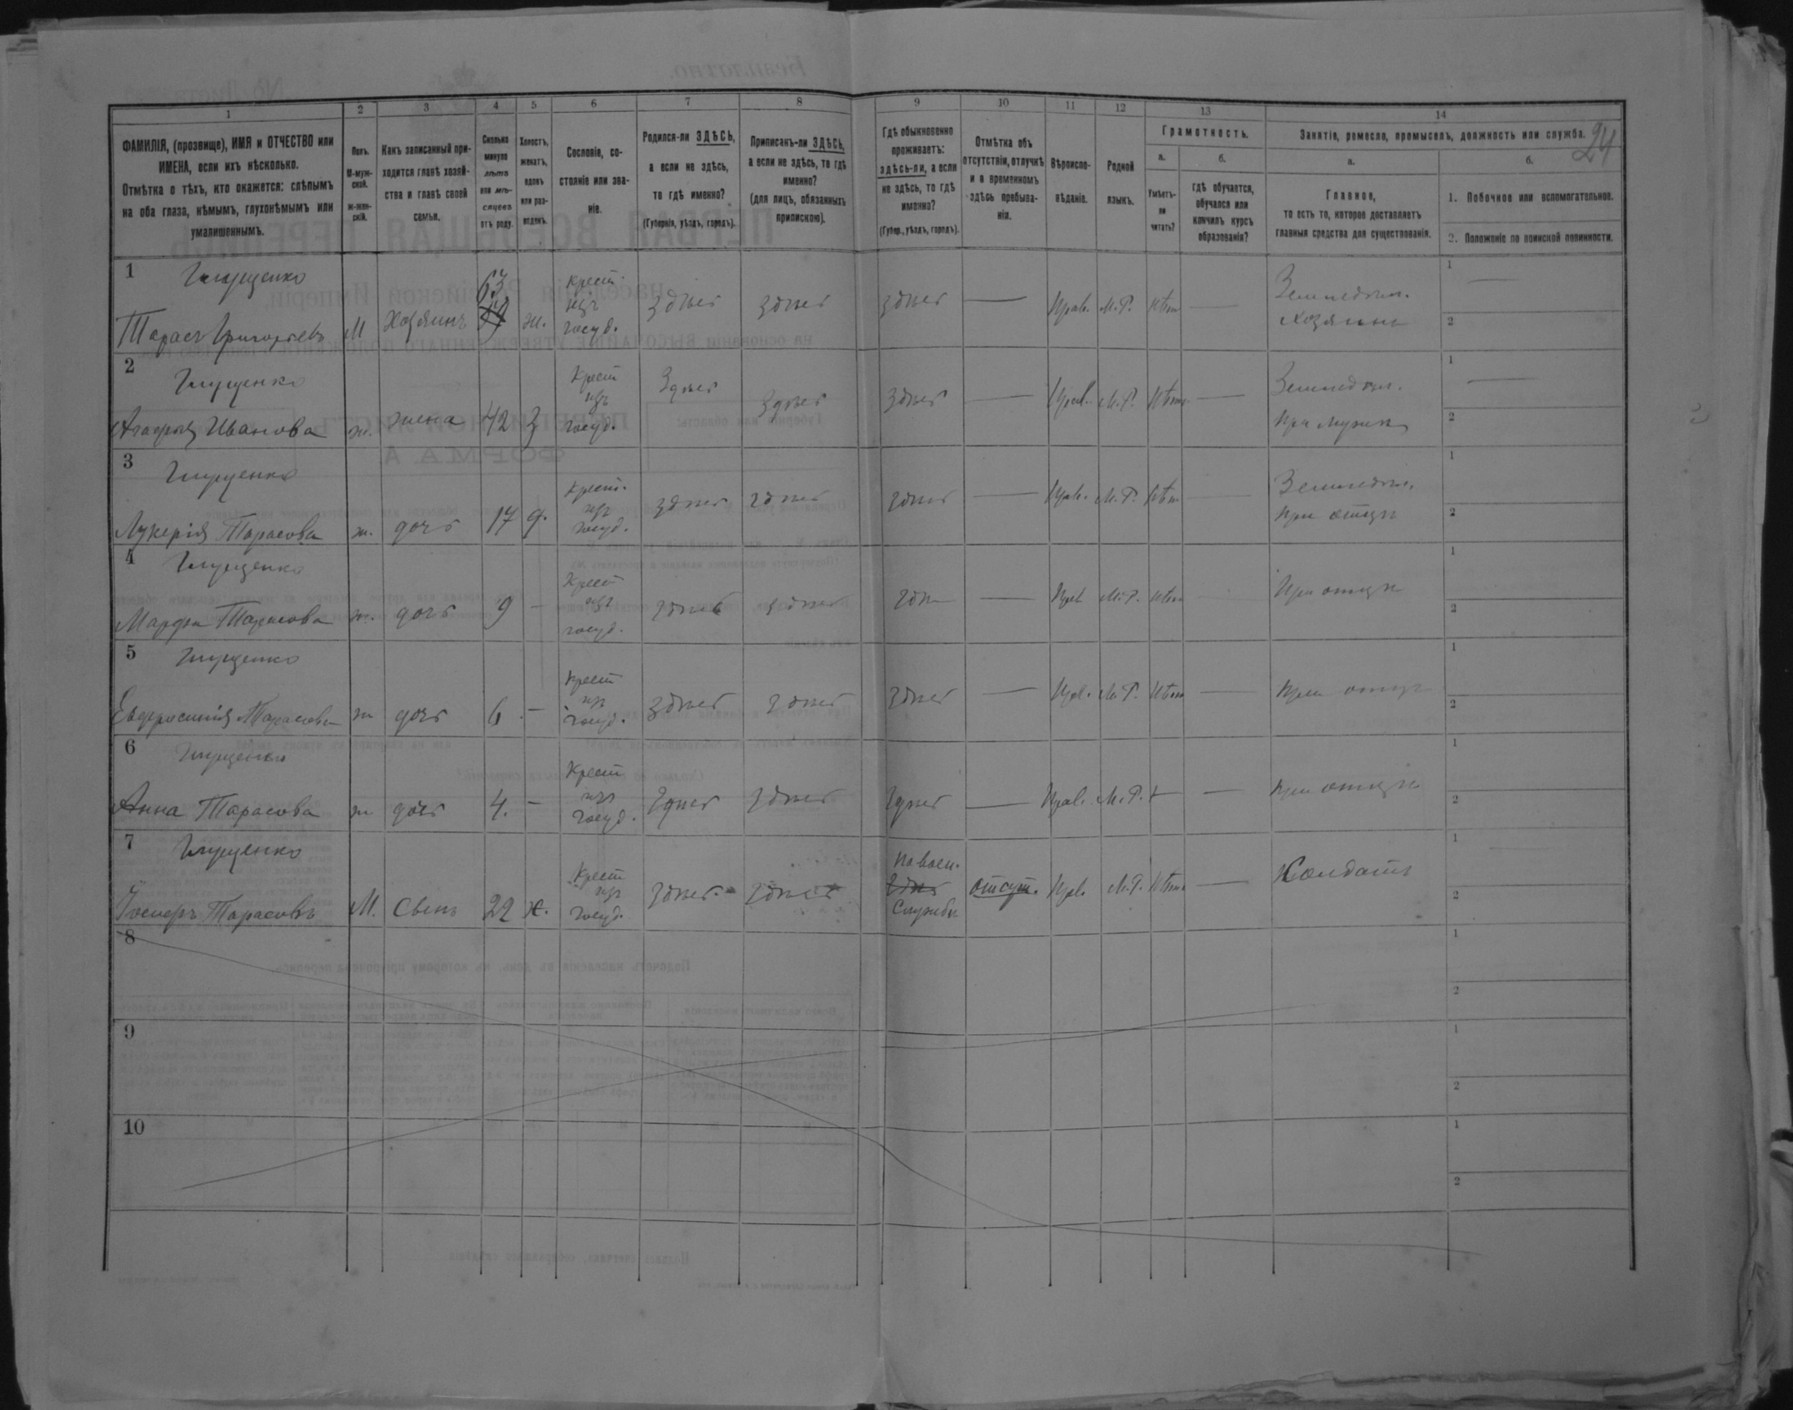 1 2 3 4 5 6 7 8 9 10 11 12 13 14
24
ФАМИЛІЯ, (прозвище), ИМЯ и ОТЧЕСТВО или ИМЕНА, если ихъ нѣсколько.
Отмѣтка о тѣхъ, кто окажется: слѣпымъ на оба глаза, нѣмымъ, глухонѣмымъ или умалишеннымъ.
Полъ.
М-мужской.
ж-женскій.
Какъ записанный приходится главѣ хозяйства и главѣ своей семьи.
Сколько минуло лѣтъ или мѣсяцевъ отъ роду.
Холостъ, женатъ, вдовъ или разведенъ.
Сословіе, состояніе или званіе.
Родился-ли ЗДѢСЬ, а если не здѣсь, то гдѣ именно?
(Губернія, уѣздъ, городъ).
Приписанъ-ли ЗДѢСЬ, а если не здѣсь, то гдѣ именно?
(для лицъ, обязанныхъ припискою).
Гдѣ обыкновенно проживаетъ: здѣсь-ли, а если не здѣсь, то гдѣ именно?
(Губер., уѣздъ, городъ).
Отмѣтка объ отсутствіи, отлучкѣ и о временномъ здѣсь пребываніи.
Вѣроисповѣданіе.
Родной языкъ.
Грамотность.
а.
Умѣетъ-ли читать?
б.
гдѣ обучается, обучался или кончилъ курсъ образованія?
Занятіе, ремесло, промыселъ, должность или служба.
а.
Главное,
то есть то, которое доставляетъ главныя средства для существованія.
б.
1. Побочное или вспомогательное.
2. Положеніе по воинской повинности.
1
Тарасъ Григорьевъ М Хозяинъ 63 ж. Крест изъ госуд. здѣсь здѣсь здѣсь — Прав. М.Р. Нѣт — Земледѣл. Хозяинъ
2
Агафія Иванова ж. жена 42 З Крест изъ госуд. Здѣсь здѣсь здѣсь — Прав. М.Р. Нѣт — Земледѣл. При мужѣ
3
Лукерія Тарасова ж. дочь 17 д. Крест. изъ госуд. здѣсь здѣсь здѣсь — Прав. М.Р. Нѣт — Земледѣл. при отцѣ
4
Марфа Тарасова ж. дочь 9 — Крест изъ госуд. здѣсь здѣсь — Прав М.Р. Нѣт При отцѣ
5
Евфросинія Тарасова ж дочь 6 — Крест изъ госуд. здѣсь здѣсь здѣсь — Прав. М.Р. Нѣт — При отцѣ
6
Анна Тарасова ж дочь 4. — Крест изъ госуд. здѣсь здѣсь здѣсь — Прав. М.Р. — — При отцѣ
7
Тарасовъ М. Сынъ 22 х. Крест изъ госуд. здѣсь здѣсь На воен. службѣ отсут. Прав. М.Р. Нѣт — Солдатъ
8
9
10